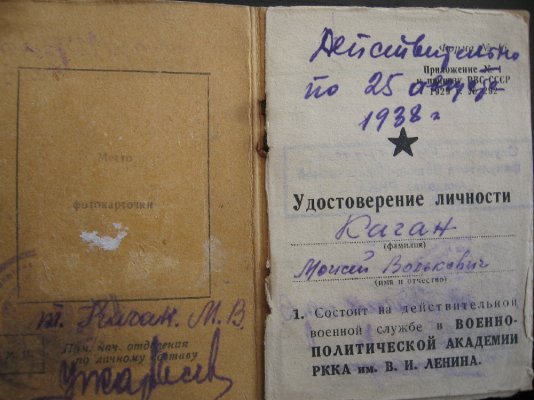 Место
фотокарточки
т. Каган. М. В.
Пом. нач. отделения
по личному составу
Действительно
по 25 августа
1938 г
Форма №
Приложение № 1
к приказу РВС СССР
1929 г. №
Удостоверение личности
Каган
(фамилия)
Моисей Волькович
(имя и отчество)
1. Состоит на действительной
военной службе в ВОЕННО-
ПОЛИТИЧЕСКОЙ АКАДЕМИИ
РККА им. В. И. ЛЕНИНА.